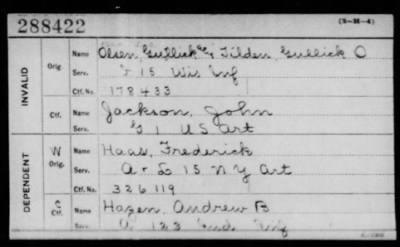 288422
INVALID
Orig.
Name Olsen, Gullick alias Tilden, Gullick O
Serv. 15 Wis Inf
Ctf. No. 178433
Ctf.
Name Jackson, John
Serv. G 1 US Art
DEPENDENT
W Orig.
Name Haas, Frederick
Serv. A + L 15 N Y Art
Ctf. No. 326119
C Ctf.
Name Hazen, Andrew B
Serv. 123 Ind. Inf